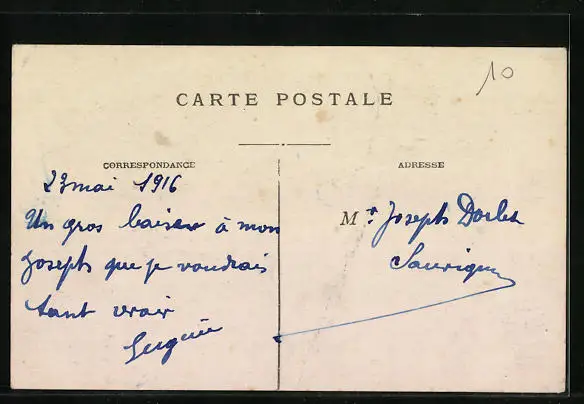 10
CARTE POSTALE
CORRESPONDANCE
ADRESSE
23 mai 1916
Un gros baiser à mon
Joseph que je voudrais
tant vroir
Mr Joseph